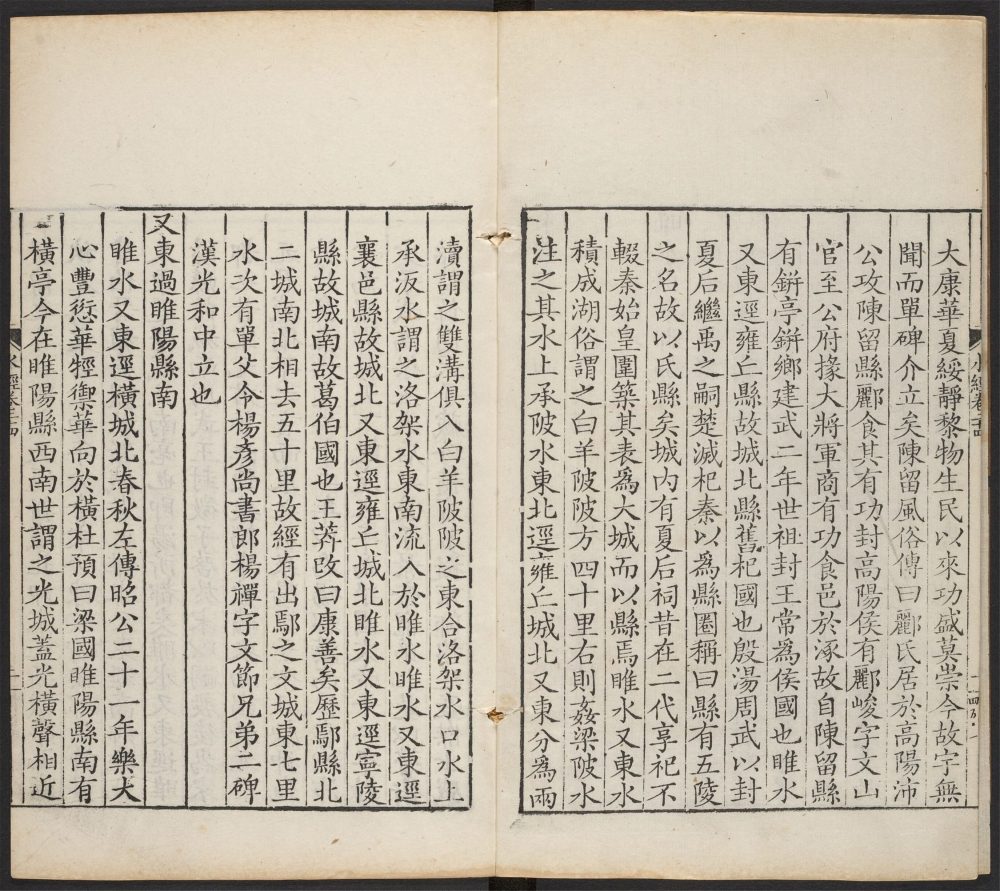 大康華夏綏靜黎物生民以來功盛莫崇今故字無
聞而單碑介立矣陳留風俗傳曰酈氏居於高陽沛
公攻陳留縣酈食其有功封高陽侯有酈峻字文山
官至公府掾大將軍商有功食邑於涿故自陳留縣
有鉼亭鉼鄉建武二年世祖封王常爲侯國也睢水
又東逕雍丘縣故城北縣舊杞國也殷湯周武以封
夏后繼禹之嗣楚滅杞秦以爲縣圈稱曰縣有五陵
之名故以氏縣矣城内有夏后祠昔在二代享祀不
輟秦始皇圍築其表爲大城而以縣焉睢水又東水
積成湖俗謂之白羊陂陂方四十里右則姦梁陂水
注之其水上承陂水東北逕雍丘城北又東分爲兩
瀆謂之雙溝俱入白羊陂陂之東合洛架水口水上
承汳水謂之洛架水東南流入於睢水睢水又東逕
襄邑縣故城北又東逕雍丘城北睢水又東逕寧陵
縣故城南故葛伯國也王莽改曰康善矣歷鄢縣北
二城南北相去五十里故經有出鄢之文城東七里
水次有單父令楊彦尚書郎楊禪字文節兄弟二碑
漢光和中立也
又東過睢陽縣南
睢水又東逕橫城北春秋左傳昭公二十一年樂大
心豐愆華牼禦華向於橫杜預曰梁國睢陽縣南有
橫亭今在睢陽縣西南世謂之光城蓋光橫聲相近